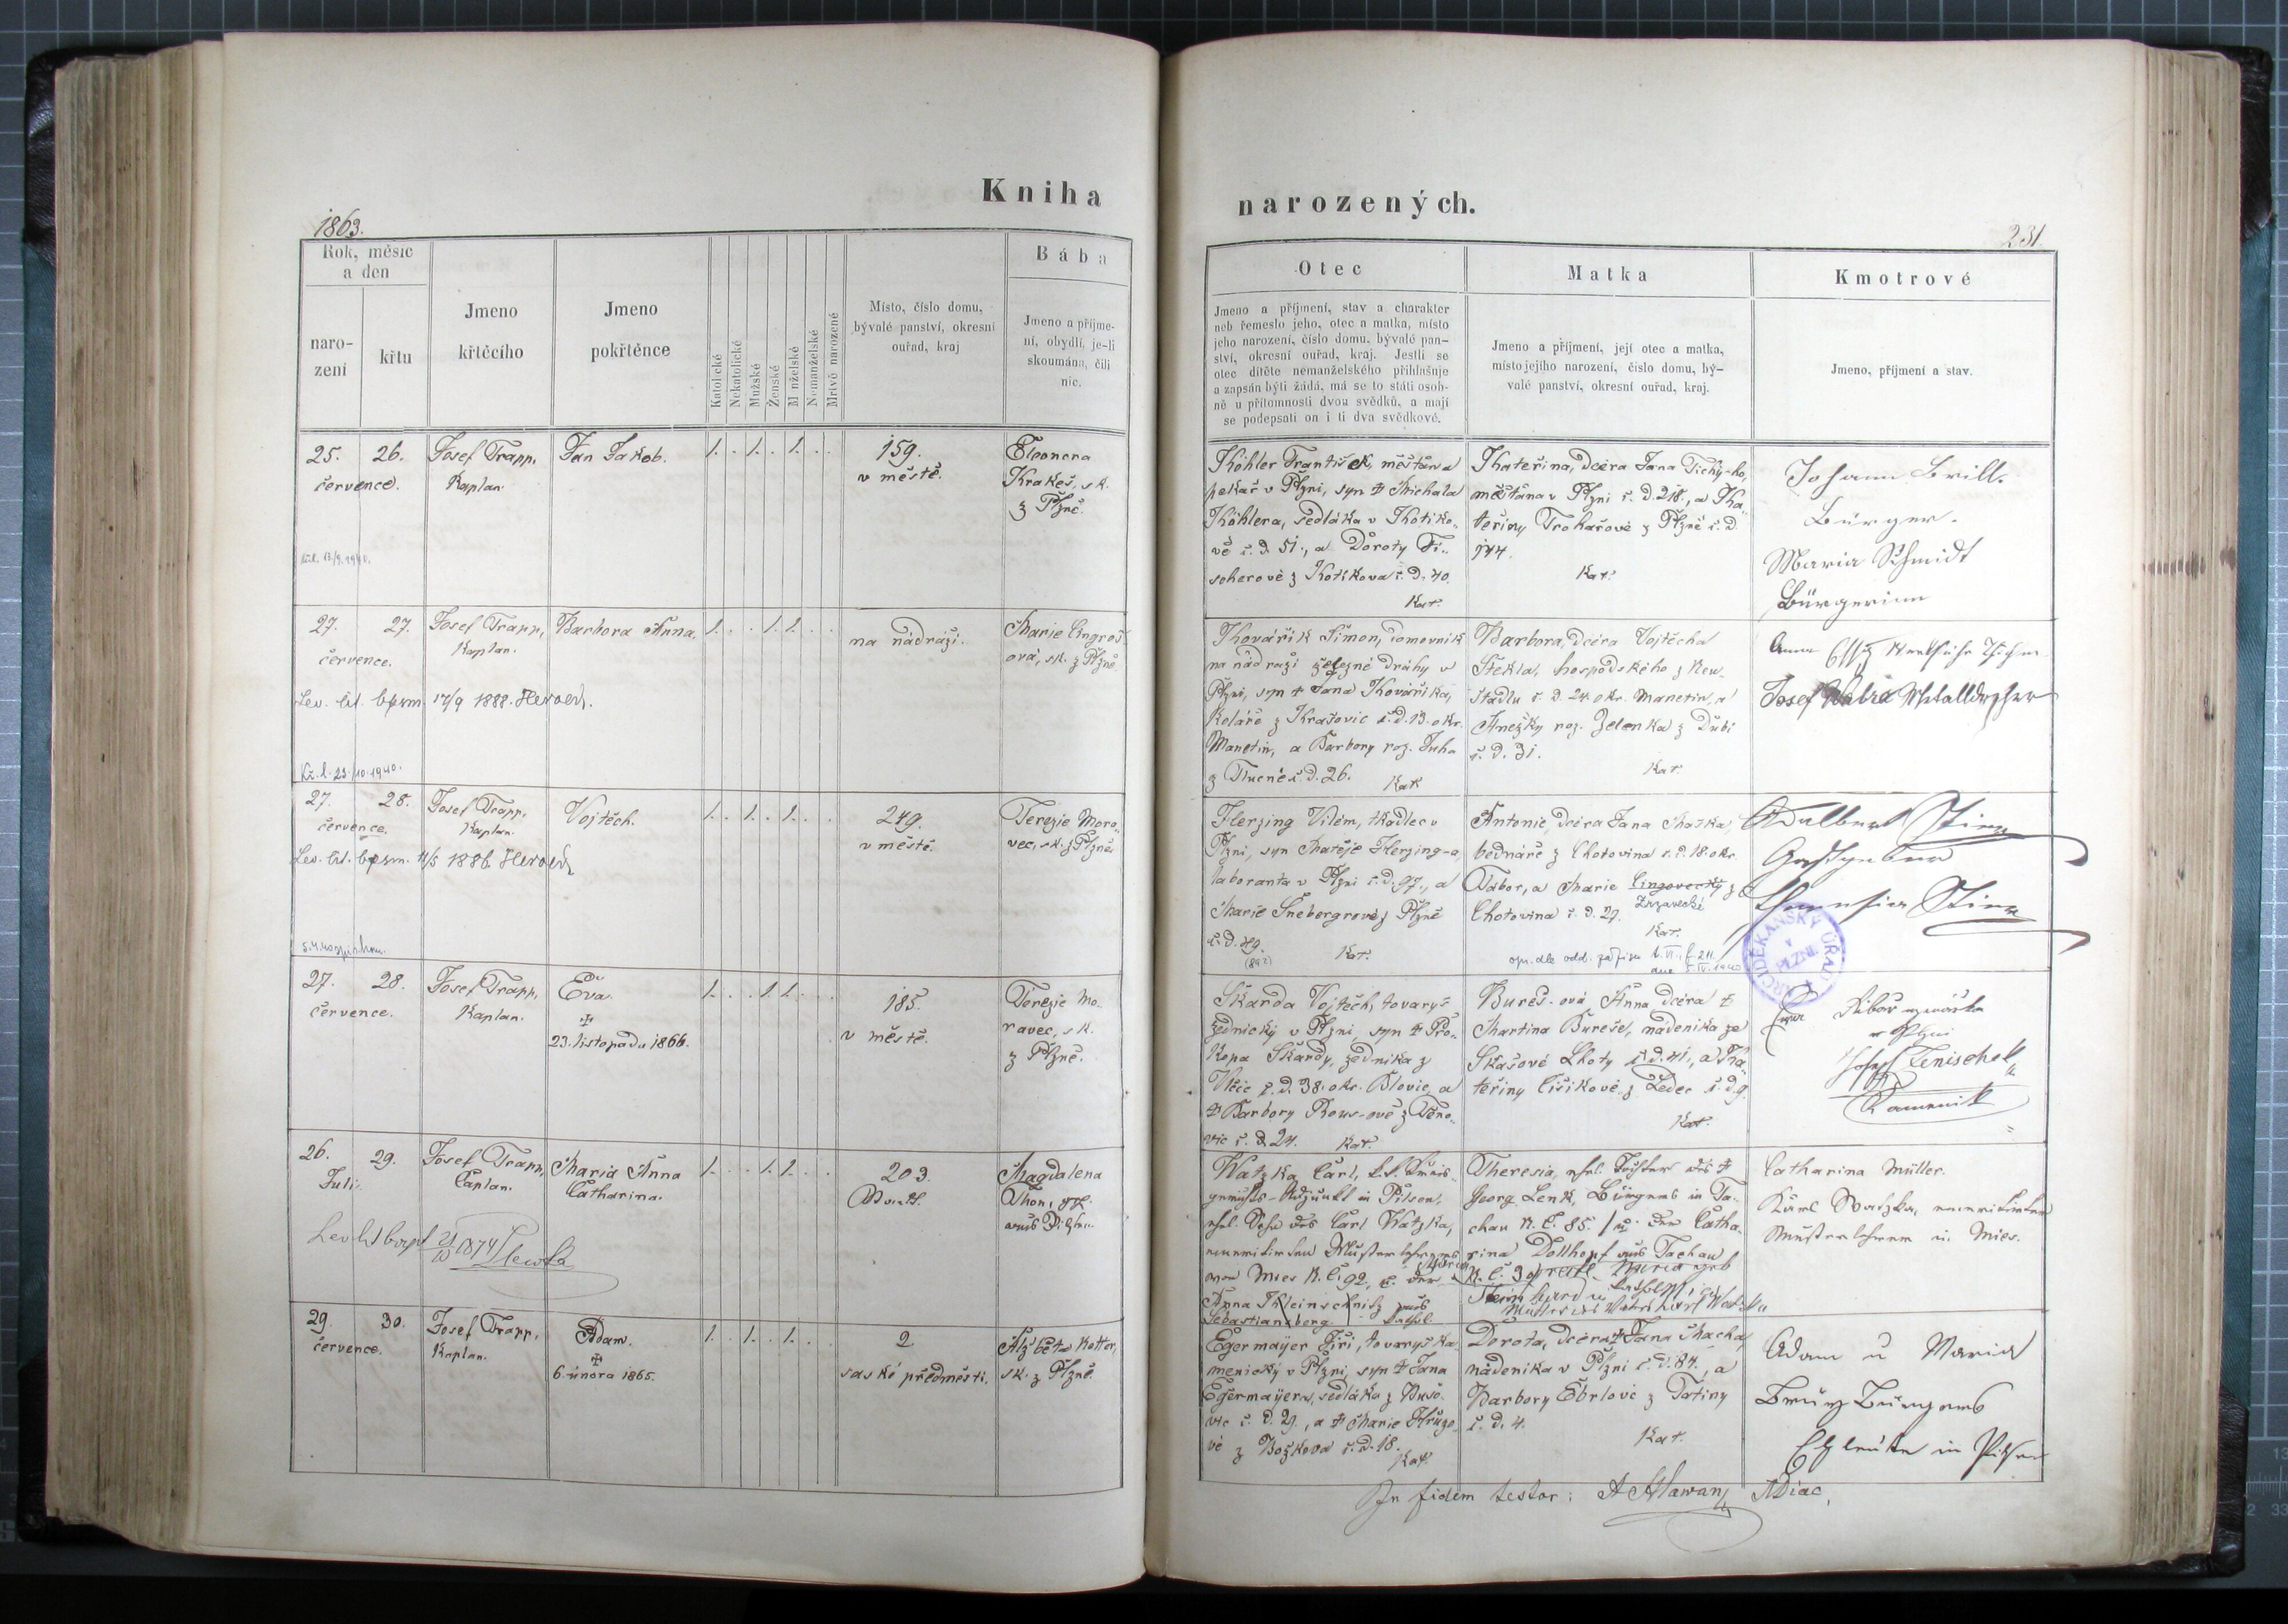 Kniha
narozených.
1863.
231.
Rok, měsíc
a den
naro-
zení
křtu
Jmeno
křtěcího
Jmeno
pokřtěnce
Katolické
Nekatolické
Mužské
Ženské
M nželské
Nemanželské
Mrtvě narozené
Místo, číslo domu,
bývalé panství, okresní
ouřad, kraj
Bába
Jmeno a příjme-
ní, obydlí, je-li
skoumána, čili
nic.
Otec
Jmeno a příjmení, stav a charakter
neb řemeslo jeho, otec a matka, místo
jeho narození, číslo domu, bývalé pan-
ství, okresní ouřad, kraj. Jestli se
otec dítěte nemanželského přihlašuje
a zapsán býti žádá, má se to státi osob-
ně u přítomnosti dvou svědků, a mají
se podepsati on i ti dva svědkové.
Matka
Jmeno a příjmení, její otec a matka,
místo jejího narození, číslo domu, bý-
valé panství, okresní ouřad, kraj.
Kmotrové
Jmeno, příjmení a stav.
25. 26.
července.
Josef Trapp,
Kaplan.
Jan Jakob.
1. . 1. . 1. . .
159.
v městě.
Eleonora
Krakeš, sk.
z Plzně.
Köhler František, měšťan a
pekař v Plzni, syn ✝ Michala
Köhlera, sedláka v Kotiko-
vě č. d. 51., a Doroty Fi-
scherové z Kotikova č. d. 40.
Kat.
Kateřina, dcera Jana Tichý-ho,
měšťana v Plzni č. d. 218., a Ka-
teřiny Trohařové z Plzně č. d.
144.
Kat.
Johann Brill.
Bürger.
Maria Schmidt
Bürgerinn
27. 27.
července.
Josef Trapp,
Kaplan.
Barbora Anna.
1. . . 1. 1. . .
na nádraží.
Marie Cingroš-
ová, sk. z Plzně.
Lev. lit. bpsm. 17/9 1888. Herold.
Kř. l. 23./10. 1940.
Kovářík Šimon, domovník
na nádraží železné dráhy v
Plzni, syn ✝ Jana Kováříka,
koláře z Krašovic č. d. 13. okr.
Manetin, a Barbory roz. Juha
z Tlucné č. d. 26.
Kat
Barbora, dcera Vojtěcha
Štekla, hospodského z Neu-
stadlu č. d. 24. okr. Manetin, a
Anežky roz. Zelenka z Dubi
č. d. 31.
Kat.
Anna
Josef
27. 28.
července.
Josef Trapp,
Kaplan.
Vojtěch.
1. . 1. . 1. . .
249.
v městě.
Terezie Mora-
vec, sk. z Plzně
Lev. lit. bpsm. 11/5 1886 Herold
Herzing Vilém, tkadlec v
Plzni, syn Matěje Herzing-a,
laboranta v Plzni č. d. 97., a
Marie Šnebergrové z Plzně
č. d. 49.
Kat.
Antonie, dcera Jana Maška,
bednáře z Chotovina č. d. 18. okr.
Tábor, a Marie Cingovecký z
Chotovina č. d. 29.
Kat.
Adalbert Stinn
ARCIDĚKANSKÝ ÚŘAD
v
PLZNI.
27. 28.
července.
Josef Trapp,
Kaplan.
Eva.
✝
23. listopadu 1866.
1. . . 1. 1. . .
185.
v městě.
Terezie Mo-
ravec, sk.
z Plzně.
Škarda Vojtěch, tovaryš
zednický v Plzni, syn ✝ Pro-
kopa Škardy, zedníka z
Vlčic č. d. 38. okr. Blovic, a
✝ Barbory Rous-ové z Těno-
vic č. d. 24. Kat.
Bureš-ová Anna dcera ✝
Martina Bureše, nádeníka ze
Skašové Lhoty č. d. 41., a Ka-
teřiny Čišíkové z Ledec č. d. 9.
Kat.
Josef Tenischel
Kameník
26. 29.
Juli.
Josef Trapp,
Caplan.
Maria Anna
Catharina.
1. . . 1. 1. . .
203.
Stadt.
Magdalena
Thon, gepr.
aus Pilsen.
Watzka Carl, k. k. Kreis-
gerichts-Adjunkt in Pilsen,
ehel. Sohn des Carl Watzka,
emeritirten Musterlehrers
von Mies N. C. 92, u. der Maria
Anna Kleinschnitz aus
Sebastiansberg. Kathol.
Theresia, ehel. Tochter des ✝
Georg Lenk, Bürgers in Ta-
chau N. C. 85. / u. der Catha-
rina Dollhopf aus Tachau
Catharina Müller.
Karl Watzka, emeritirter
Musterlehrer in Mies.
29. 30.
července.
Josef Trapp,
Kaplan.
Adam.
✝
6. února 1865.
1. . 1. . 1. . .
2
saské předměstí.
Alžběta Kotter,
sk. z Plzně.
Egermayer Jiří, tovaryš ka-
menický v Plzni, syn ✝ Jana
Egermayera, sedláka z Buše-
vic č. d. 29., a ✝ Marie Hruzo-
vé z Božkova č. d. 18.
Kat.
Dorota, dcera ✝ Jana Macha,
nádeníka v Plzni č. d. 84., a
Barbory Ebrlové z Tatiny
č. d. 4.
Kat.
Adam u Maria
Bürgers
Eheleute in Pilsen
In fidem testor: A Hlawan ADiac.